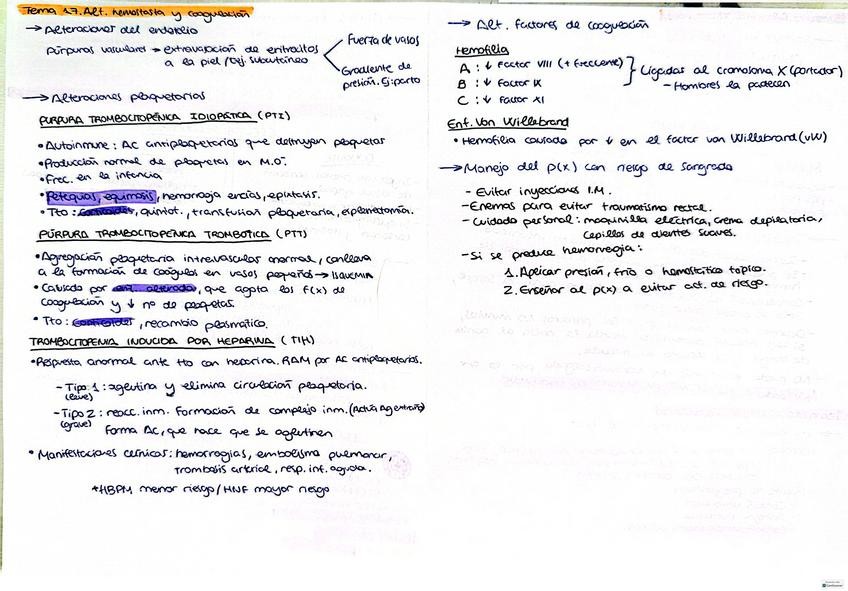 Tema 17. Alt. hemostasia y coagulación
→ Alteraciones del endotelio
Púrpuras vasculares → extravasación de eritrocitos
a la piel / tej. subcutáneo
Fuerza de vasos
Gradiente de
presión. Ej: parto
→ Alteraciones plaquetarias
PÚRPURA TROMBOCITOPÉNICA IDIOPÁTICA (PTI)
• Autoinmune: AC antiplaquetarios que destruyen plaquetas
• Producción normal de plaquetas en M.O.
• Frec. en la infancia
• Petequias, equimosis, hemorragia encías, epistaxis.
• Tto: , quimiot., transfusión plaquetaria, esplenectomía.
PÚRPURA TROMBOCITOPÉNICA TROMBÓTICA (PTT)
• Agregación plaquetaria intravascular anormal, conlleva
a la formación de coágulos en vasos pequeños → ISQUEMIA
• Causado por enz. alterada, que agota los f(x) de
coagulación y ↓ nº de plaquetas.
• Tto: , recambio plasmático.
TROMBOCITOPENIA INDUCIDA POR HEPARINA (TIH)
• Respuesta anormal ante tto con heparina. RAM por AC antiplaquetarios.
- Tipo 1: aglutina y elimina circulación plaquetaria.
(leve)
- Tipo 2: reacc. inm. Formación de complejo inm.
(grave)
Forma AC, que hace que se aglutinen
• Manifestaciones clínicas: hemorragias, embolismo pulmonar,
trombosis arterial, resp. inf. aguda.
*HBPM menor riesgo / HNF mayor riesgo
→ Alt. factores de coagulación
Hemofilia
A: ↓ Factor VIII (+ frecuente)
B: ↓ Factor IX
C: ↓ Factor XI
Ligadas al cromosoma X (portador)
- Hombres la padecen
Enf. Von Willebrand
• Hemofilia causada por ↓ en el factor von Willebrand (vW)
→ Manejo del p(x) con riesgo de sangrado
- Evitar inyecciones I.M.
- Enemas para evitar traumatismo rectal.
- Cuidado personal: maquinilla eléctrica, crema depilatoria,
cepillos de dientes suaves.
- Si se produce hemorragia:
1. Aplicar presión, frío o hemostático tópico.
2. Enseñar al p(x) a evitar act. de riesgo.